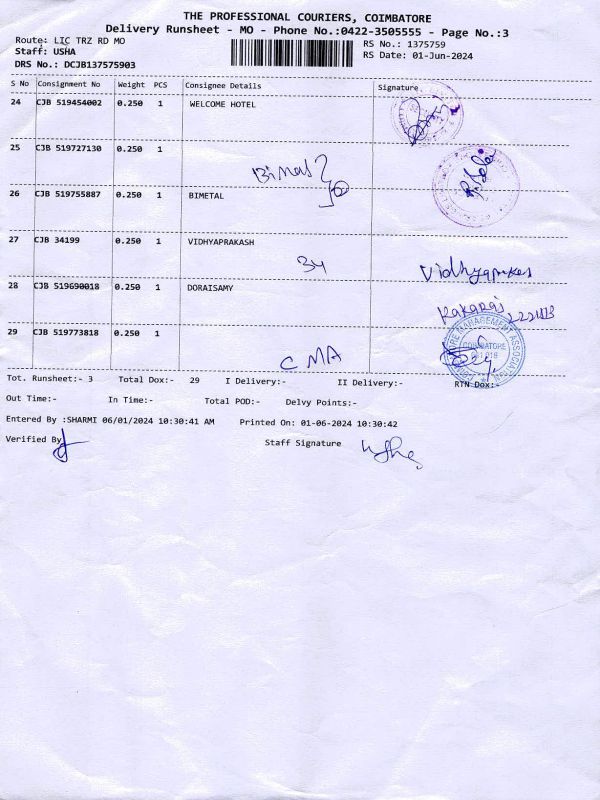 THE PROFESSIONAL COURIERS, COIMBATORE
Delivery Runsheet - MO - Phone No.:0422-3505555 - Page No.:3
Route: LIC TRZ RD MO RS No.: 1375759
Staff: USHA RS Date: 01-Jun-2024
DRS No.: DCJB137575903
S No Consignment No Weight PCS Consignee Details Signature
24 CJB 519454002 0.250 1 WELCOME HOTEL
25 CJB 519727130 0.250 1
26 CJB 519755887 0.250 1 BIMETAL
27 CJB 34199 0.250 1 VIDHYAPRAKASH
34
28 CJB 519690018 0.250 1 DORAISAMY
29 CJB 519773818 0.250 1
CMA
COIMBATORE MANAGEMENT ASSOCIATION
COIMBATORE
Tot. Runsheet:- 3 Total Dox:- 29 I Delivery:- II Delivery:- RTN Dox:-
Out Time:- In Time:- Total POD:- Delvy Points:-
Entered By :SHARMI 06/01/2024 10:30:41 AM Printed On: 01-06-2024 10:30:42
Verified By Staff Signature Usha